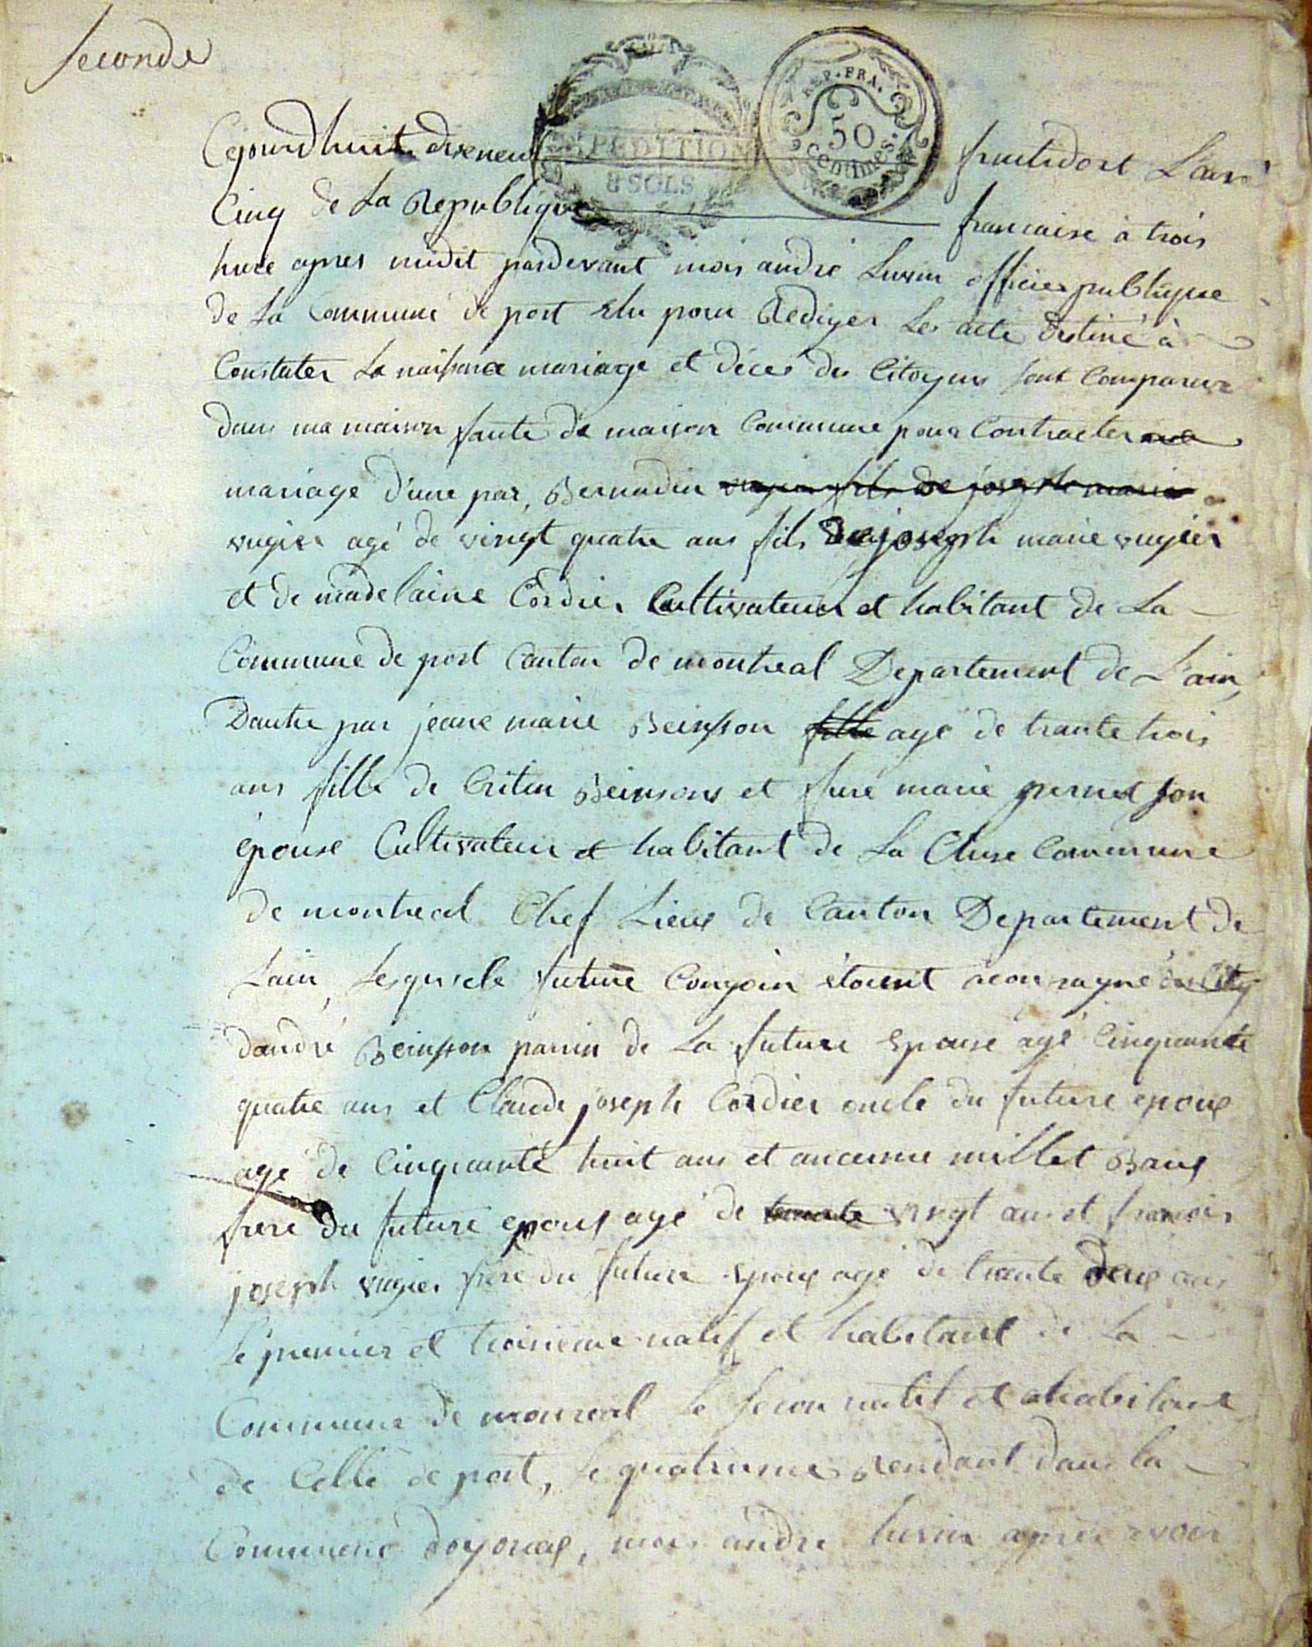 Seconde
EXPEDITION
8 SOLS
REP. FRA.
50
Centimes.
Cejourdhuit dixneuf fruitidort L'an
Cinq de La Republique francaise à trois
hure apres midit pardevant mois andré officier publique
de La Commune de port Elu pour Rediger Les acte Destiné à
Constater La naissance mariage et déces des Citoyens sont Comparux
dans ma maison faute de maison Commune pour Contracter
mariage d'une par, Bernadin
vugier agé de vingt quatre ans fils De joseph marie vugier
et de madelaine Cordier Cultivateur et habitant de La
Commune de port Canton de montreal Departement de L'ain,
Dautre par jeane marie Beinsson fille agé de trante trois
ans fille de Beinsons et furé marie pernet son
épouse Cultivateur et habitant de La Cluse Commune
de montreal Chef Lieux de Canton Departement de
Lain, Lesquele future étoient
dandré Beinsson parin de La future Epouse agé Cinquante
quatre ans et Claude joseph Cordier oncle du future epoux
agé de Cinquante huit ans et millet
frere du future epoux agé de vingt ans et francois
joseph vugier frere du future Epoux agé de trante deux ans
Le premier et troisieme natif et habitant de La
Commune de monreal Le secon natif et habitant
de Celle de port, Le quatrieme Rendant dans la
Commune doyonax, mois andre apres avoir